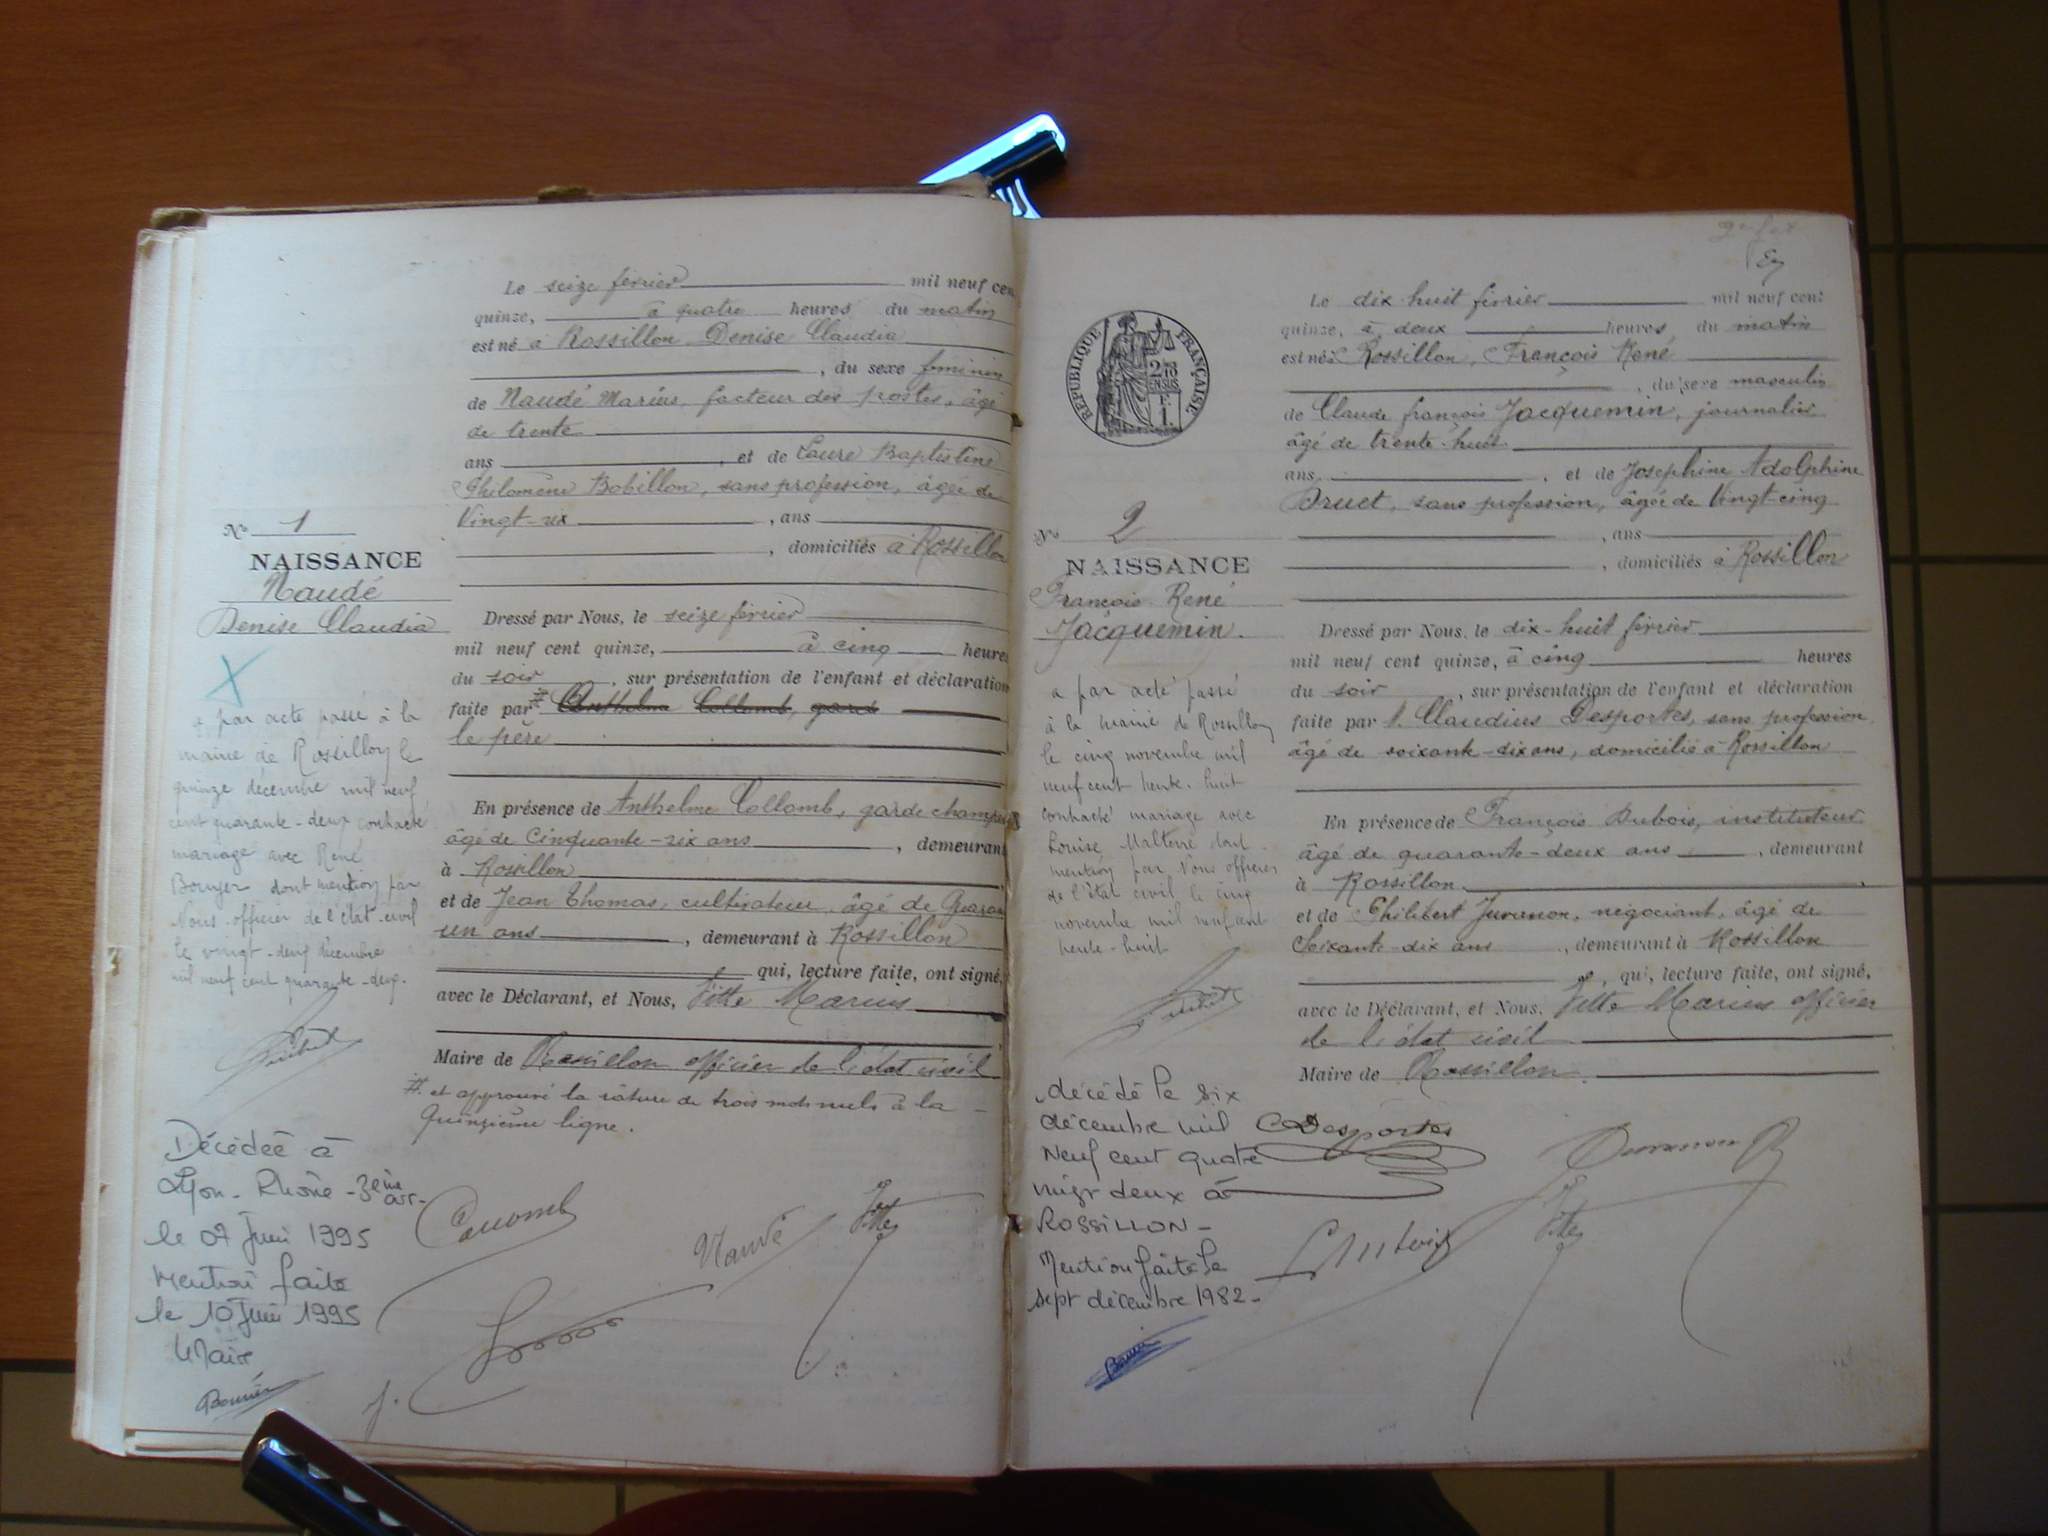 Le seize février mil neuf cen
quinze, à quatre heures du matin
est né à Rossillon Denise Claudia
, du sexe féminin
de Naudé Marius, facteur des postes, âgé
de trente
ans , et de Laure Baptistine
Philomène Bobillon, sans profession, âgée de
Vingt-six , ans
, domiciliés à Rossillon
Nº 1
NAISSANCE
Naudé
Denise Claudia
Dressé par Nous, le seize février
mil neuf cent quinze, à cinq heures
du soir , sur présentation de l'enfant et déclaration
faite par # Anthelme Collomb, garde
le père
En présence de Anthelme Collomb, garde champêt
âgé de Cinquante-six ans , demeurant
à Rossillon
et de Jean Thomas, cultivateur, âgé de Quaran
un ans , demeurant à Rossillon
qui, lecture faite, ont signé,
avec le Déclarant, et Nous, Vitte Marius
Maire de Rossillon officier de l'état civil
# et approuvé la rature de trois mots nuls à la
Quinzième ligne.
x par acte passé à la
mairie de Rossillon le
quinze décembre mil neuf
cent quarante-deux contracté
mariage avec René
dont mention par
Nous officier de l'état-civil
le vingt-deux décembre
mil neuf cent quarante-deux.
Décédée à
Lyon - Rhône - 3ème arr -
le 07 Juin 1995
Mention faite
le 10 Juin 1995
Le Maire
Collomb
Naudé
Vitte
RÉPUBLIQUE FRANÇAISE
2/10 EN SUS
1 F.
Le dix-huit février mil neuf cent
quinze, à deux heures du matin
est né à Rossillon, François René
, du sexe masculin
de Claude françois Jacquemin, journalier
âgé de trente-huit
ans, , et de Joséphine Adolphine
Druet, sans profession, âgée de Vingt-cinq
, ans
, domiciliés à Rossillon
Nº 2
NAISSANCE
François René
Jacquemin.
Dressé par Nous, le dix-huit février
mil neuf cent quinze, à cinq heures
du soir , sur présentation de l'enfant et déclaration
faite par Claudius Desportes, sans profession,
âgé de soixante-dix ans, domicilié à Rossillon
En présence de François Dubois, instituteur
âgé de quarante-deux ans , demeurant
à Rossillon
et de Philibert Juvanon, négociant, âgé de
Soixante-dix ans , demeurant à Rossillon
, qui, lecture faite, ont signé,
avec le Déclarant, et Nous, Vitte Marius officier
de l'état civil
Maire de Rossillon.
x par acte passé
à la mairie de Rossillon
le cinq novembre mil
neuf cent trente-huit
contracté mariage avec
Louise Malterre dont
mention par Nous officier
de l'état civil le cinq
novembre mil neuf cent
trente-huit
décédé le six
décembre mil
Neuf cent quatre
vingt deux à
ROSSILLON -
Mention faite le
sept décembre 1982 -
CDesportes
Juvanon
Vitte